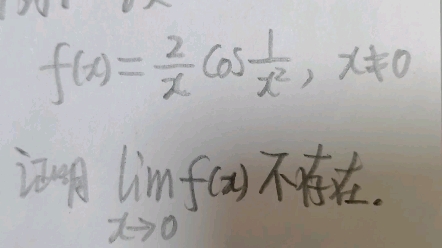 f(x) = \frac{2}{x} cos \frac{1}{x^2}, x≠0
证明 \lim_{x→0} f(x) 不存在.